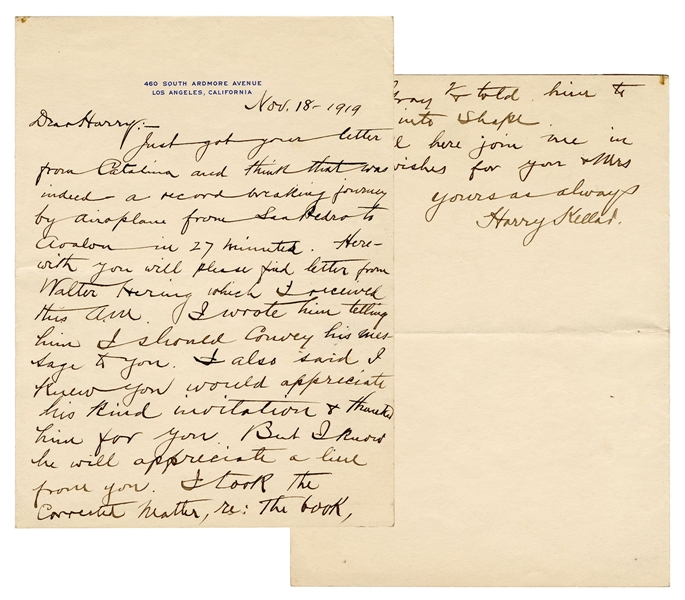 460 SOUTH ARDMORE AVENUE
LOS ANGELES, CALIFORNIA
Nov. 18 - 1919
Dear Harry:-
Just got your letter
from Catalina and think that was
indeed - a record breaking journey
by airoplane from San Pedro to
Avalon in 27 minutes. Here-
with you will please find letter from
Walter Hering which I received
this A.M. I wrote him telling
him I should convey his mes-
sage to you. I also said I
knew you would appreciate
his kind invitation & thanked
him for you. But I know
he will appreciate a line
from you. I took the
corrected matter, re: the book,
told him to
into shape.
here join me in
wishes for you & Mrs
yours as always
Harry Kellar.